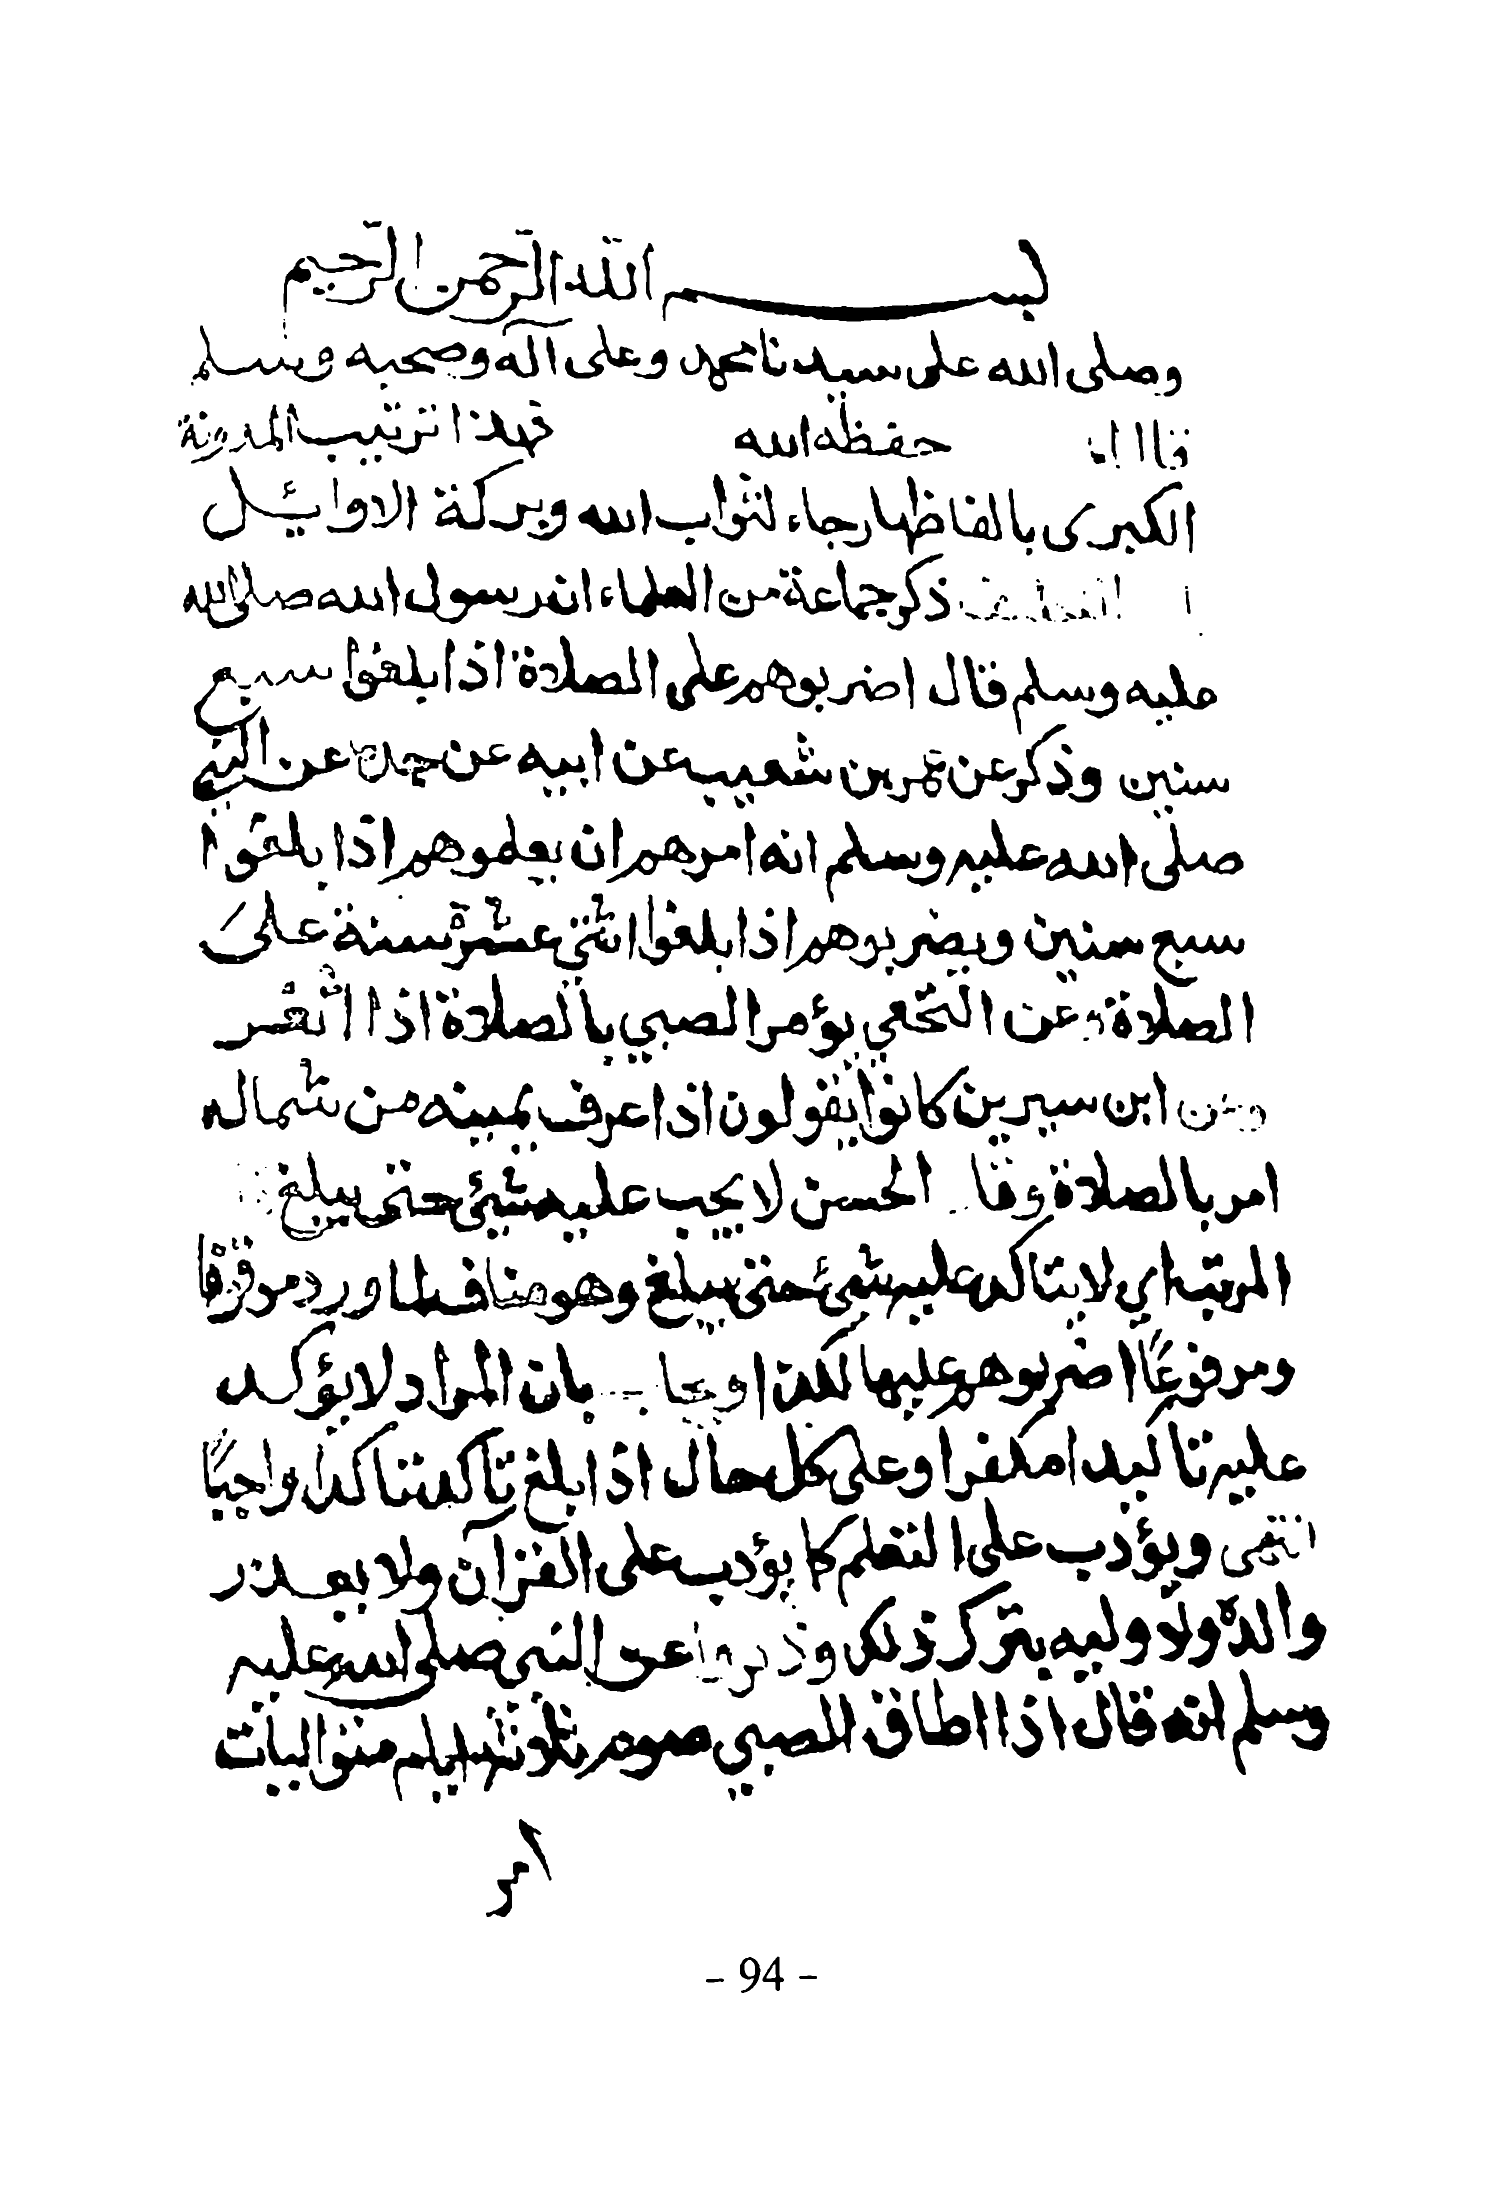 بسم الله الرحمن الرحيم
وصلى الله على سيدنا محمد وعلى آله وصحبه وسلم
حفظه الله فهذا ترتيب المدونة
الكبرى بالفاظها رجاء لثواب الله وبركة الاوائل
ذكر جماعة من العلماء ان رسول الله صلى الله
عليه وسلم قال اضربوهم على الصلاة اذا بلغوا سبع
سنين وذكر عن عمر بن شعيب عن ابيه عن جده عن النبي
صلى الله عليه وسلم انه امرهم ان يعلموهم اذا بلغوا
سبع سنين ويضربوهم اذا بلغوا اثنتي عشرة سنة على
الصلاة وعن النخعي يؤمر الصبي بالصلاة اذا اثغر
وعن ابن سيرين كانوا يقولون اذا عرف يمينه من شماله
امر بالصلاة الحسن لا يجب عليه شيئ حتى يبلغ
اي لا يتاكد عليه شيئ حتى يبلغ وهو مناف لما ورد موقوفا
ومرفوعًا اضربوهم عليها لكن بان المراد لا يؤكد
عليه تاكيدا وعلى كل حال اذا بلغ تأكد تاكدا واجبًا
انتهى ويؤدب على التعلم كما يؤدب على القرآن ولا يعذر
والده ولا وليه بترك ذلك عن النبي صلى الله عليه
وسلم انه قال اذا اطاق الصبي صوم ثلاثة ايام متواليات
- 94 -